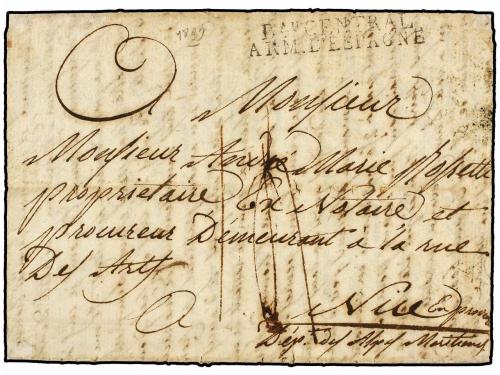 1809
BAU CENTRAL
ARM. D'ESPAGNE
Monsieur
Monsieur André Marie
proprietaire Ex Notaire et
procureur Démeurant à la rue
Des Arts
à
Nice En
Dép. des Alpes Maritimes